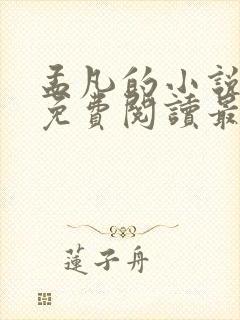 孟凡的小說
免費閱讀最
蓮子舟